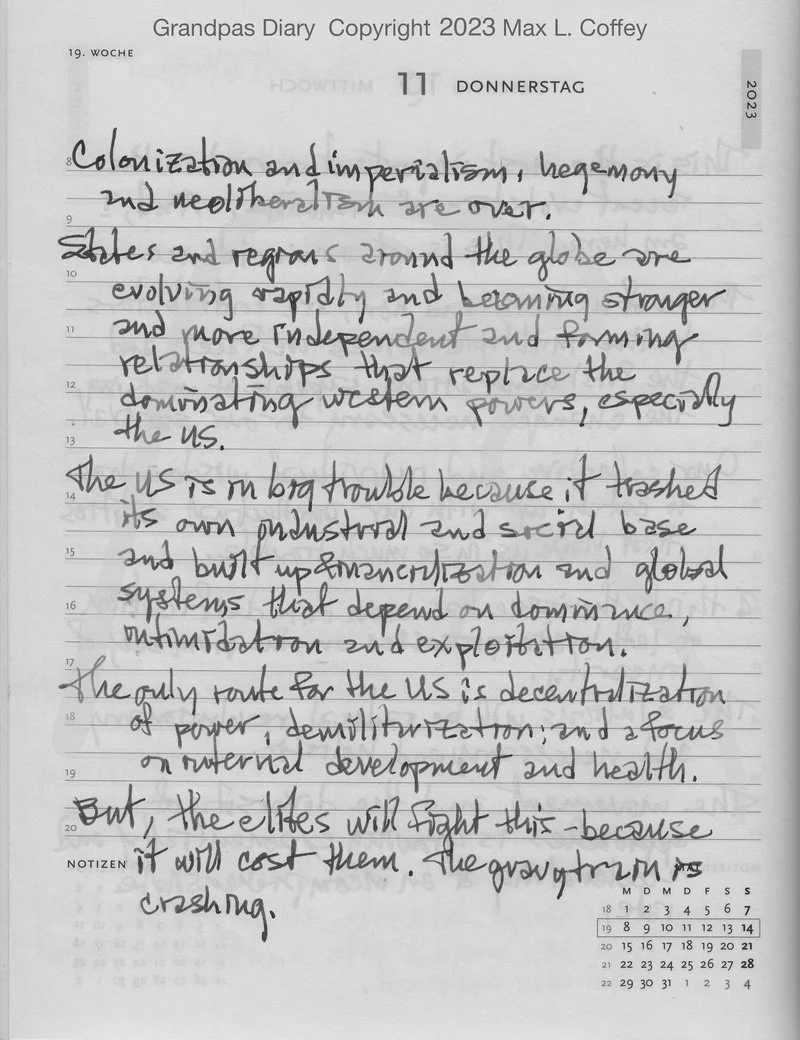 Grandpas Diary Copyright 2023 Max L. Coffey
19. WOCHE
11 DONNERSTAG
2023
8 Colonization and imperialism, hegemony
and neoliberalism are over.
9
States and regions around the globe are
10
evolving rapidly and becoming stronger
11 and more independent and forming
relationships that replace the
12 dominating western powers, especially
13 the US.
The US is in big trouble because it trashed
14
its own industrial and social base
15 and built up financialization and global
16 systems that depend on dominance,
intimidation and exploitation.
17
The only route for the US is decentralization
18 of power, demiliturization, and a focus
19 on internal development and health.
But, the elites will fight this - because
20
NOTIZEN it will cost them. The gravytrain is
crashing.
M D M D F S S
18 1 2 3 4 5 6 7
19 8 9 10 11 12 13 14
20 15 16 17 18 19 20 21
21 22 23 24 25 26 27 28
22 29 30 31 1 2 3 4